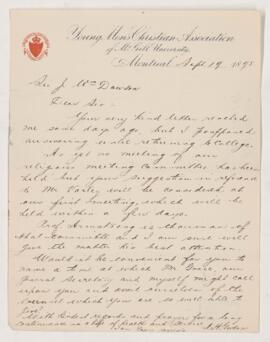 Young Men's Christian Association
of McGill University.
Montreal Sept. 19. 1895
Sir J. Wm Dawson
Dear Sir:-
Your very kind letter reached
me some days ago, but I
answering until returning to College.
As yet no meeting of our
religious meeting Committee has been
held but your suggestion in regard
to Mr. will be considered at
our first meeting, which will be
held within a few days.
Prof Armstrong is chairman of
that committee and I am sure will
give the matter his best attention.
Would it be convenient for you to
name a time at which Mr. our
General Secretary and myself might call
upon you and avail ourselves of the
counsel which you are so well able to
give?
With kindest regards and prayer for a long
continuance in a life of health and